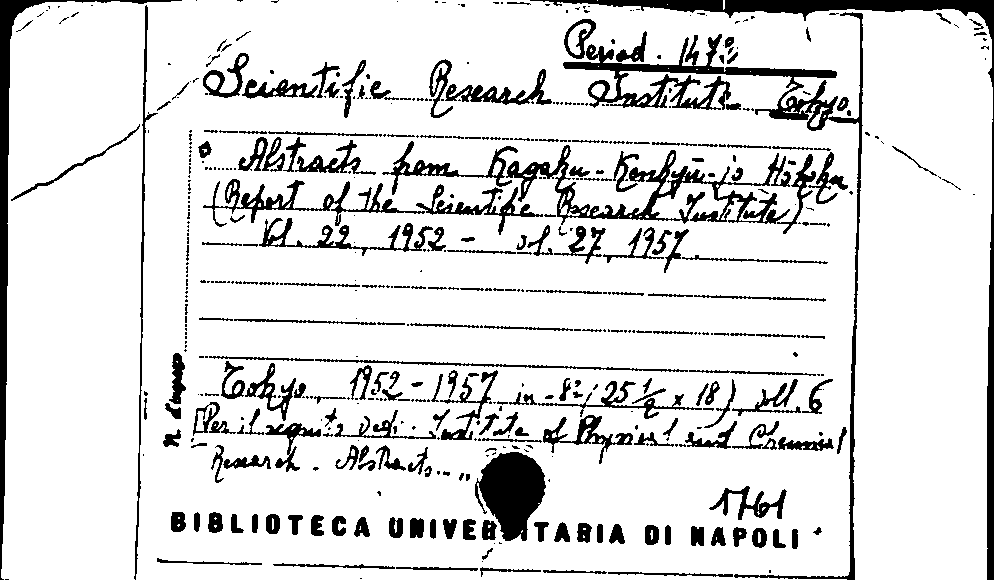 Period. 1473
Scientific Research Institute Tokyo.
Abstracts from Kagaku-Kenkyū-jo Hōkoku.
(Report of the Scientific Research Institute)
Vol. 22, 1952 - vol. 27, 1957.
Tokyo, 1952-1957 in-8º (25 1/2 x 18), voll. 6
[Per il seguito vedi: Institute of Physical and Chemical
Research. Abstracts... "
N. d'ingresso
1761
BIBLIOTECA UNIVERSITARIA DI NAPOLI